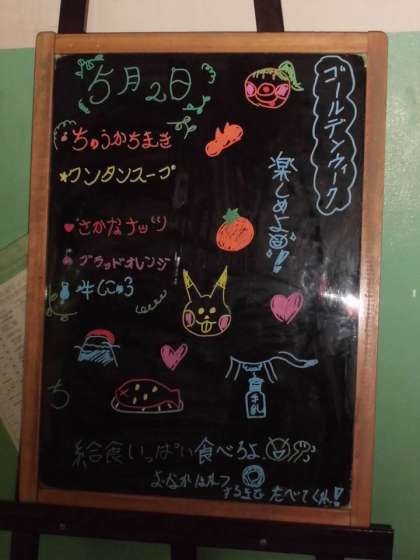 5月2日
ゴールデンウィーク
ちゅうかちまき
ワンタンスープ
楽しめよ!!
さかなナッツ
ブラッドオレンジ
牛にゅう
牛乳
ち
給食いっぱい食べろよ、
たべてくれ!